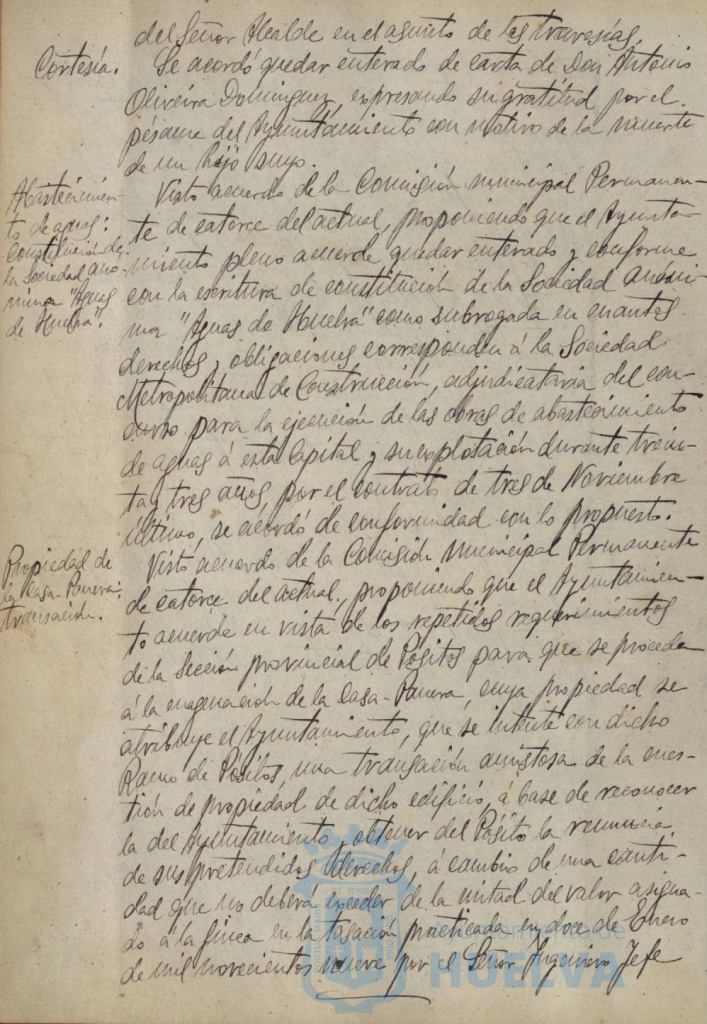 del Señor Alcalde en el asunto de las travesías.
Cortesía.
Se acordó quedar enterado de carta de Don Antonio
Oliveira Domínguez, expresando su gratitud por el
pésame del Ayuntamiento con motivo de la muerte
de un hijo suyo.
Abastecimien-
to de aguas:
constitución de
la Sociedad anó-
nima "Aguas
de Huelva".
Visto acuerdo de la Comisión municipal Permanen-
te de catorce del actual, proponiendo que el Ayunta-
miento pleno acuerde quedar enterado y conforme
con la escritura de constitución de la Sociedad anóni-
ma "Aguas de Huelva" como subrogada en cuantos
derechos y obligaciones corresponden á la Sociedad
Metropolitana de Construcción, adjudicataria del con-
curso para la ejecución de las obras de abastecimiento
de aguas á esta Capital y su explotación durante trein-
ta y tres años, por el contrato de tres de Noviembre
último, se acordó de conformidad con lo propuesto.
Propiedad de
la Casa-Panera:
transación.
Visto acuerdo de la Comisión municipal Permanente
de catorce del actual, proponiendo que el Ayuntamien-
to acuerde en vista de los repetidos requerimientos
de la Sección provincial de Pósitos para que se proceda
á la enagenación de la Casa-Panera, cuya propiedad se
atribuye el Ayuntamiento, que se intente con dicho
Ramo de Pósitos, una transación amistosa de la cues-
tión de propiedad de dicho edificio, á base de reconocer
la del Ayuntamiento y obtener del Pósito la renuncia
de sus pretendidos derechos, á cambio de una canti-
dad que no deberá exceder de la mitad del valor asigna-
do á la finca en la tasación practicada en doce de Enero
de mil novecientos nueve por el Señor Ingeniero Jefe
HUELVA